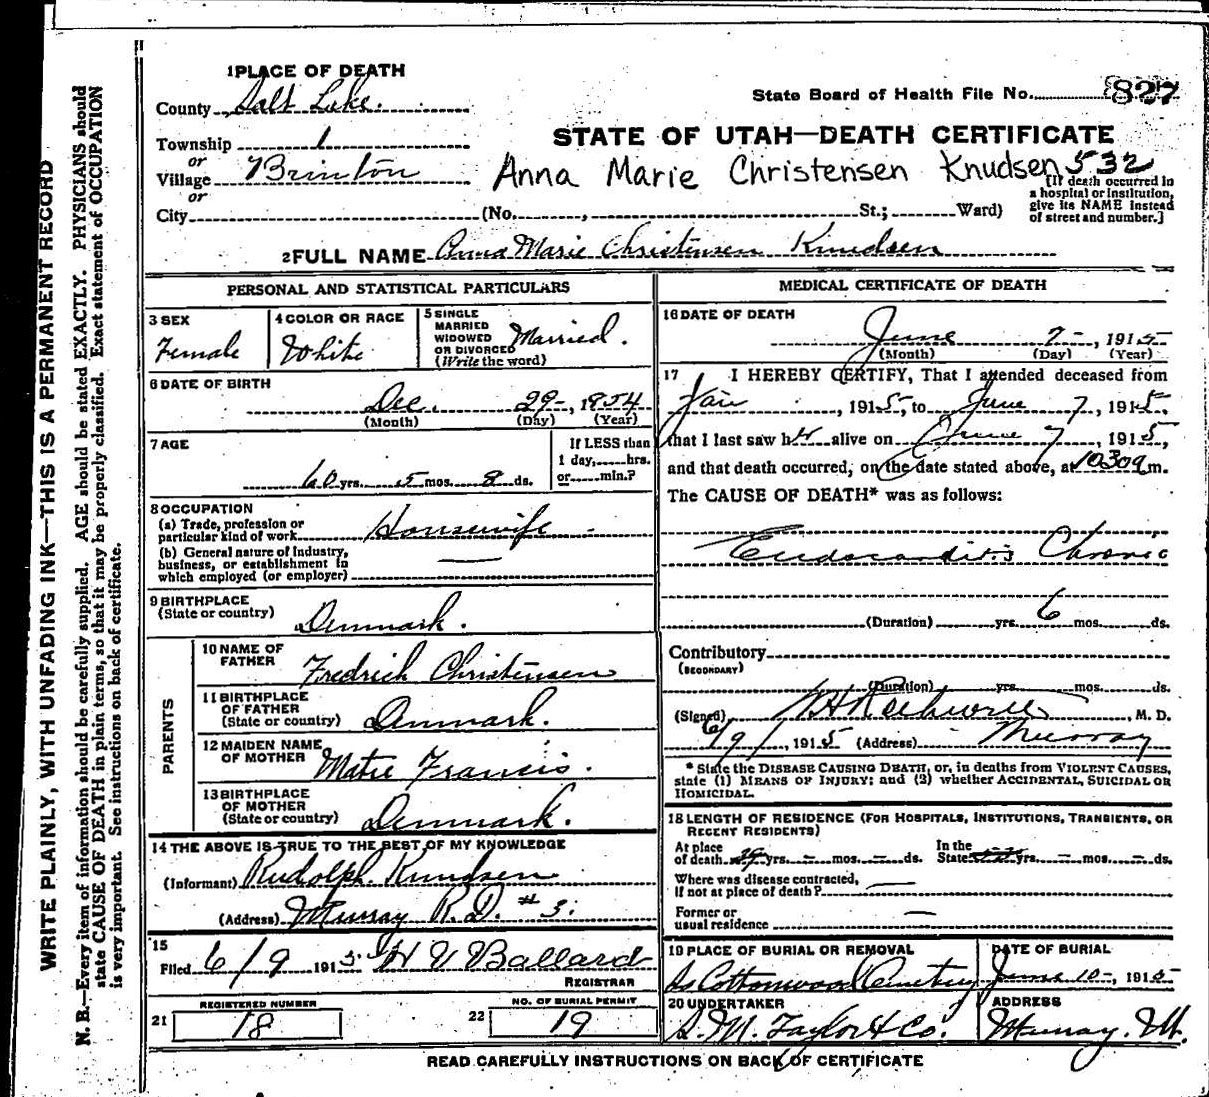 1 PLACE OF DEATH
County Salt Lake.
State Board of Health File No. 827
Township 1
STATE OF UTAH—DEATH CERTIFICATE
or
Village Brinton
Anna Marie Christensen Knudsen 532
or
City (No. , St.; Ward)
[If death occurred in
a hospital or institution,
give its NAME instead
of street and number.]
2 FULL NAME Anna Marie Christensen Knudsen
PERSONAL AND STATISTICAL PARTICULARS
3 SEX
Female
4 COLOR OR RACE
White
5 SINGLE
MARRIED
WIDOWED
OR DIVORCED
(Write the word)
Married.
6 DATE OF BIRTH
Dec. 29-, 1854
(Month) (Day) (Year)
7 AGE
60 yrs. 5 mos. 8 ds.
If LESS than
1 day, hrs.
or min.?
8 OCCUPATION
(a) Trade, profession or
particular kind of work Housewife -
(b) General nature of Industry,
business, or establishment in
which employed (or employer)
9 BIRTHPLACE
(State or country)
Denmark.
PARENTS
10 NAME OF
FATHER
Fredrich Christensen
11 BIRTHPLACE
OF FATHER
(State or country)
Denmark.
12 MAIDEN NAME
OF MOTHER
Matie Francis.
13 BIRTHPLACE
OF MOTHER
(State or country)
Denmark.
14 THE ABOVE IS TRUE TO THE BEST OF MY KNOWLEDGE
(Informant) Rudolph Knudsen
(Address) Murray R.D. # 3.
15
Filed 6/9 1915 H V Ballard
REGISTRAR
REGISTERED NUMBER
21 18
NO. OF BURIAL PERMIT
22 19
MEDICAL CERTIFICATE OF DEATH
16 DATE OF DEATH
June 7-, 1915
(Month) (Day) (Year)
17 I HEREBY CERTIFY, That I attended deceased from
Jan , 1915, to June 7, 1915,
that I last saw her alive on June 7, 1915,
and that death occurred, on the date stated above, at 1030 a m.
The CAUSE OF DEATH* was as follows:
Endocarditis Chronic
(Duration) yrs. 6 mos. ds.
Contributory
(SECONDARY)
(Duration) yrs. mos. ds.
(Signed) , M. D.
6/9/, 1915 (Address) Murray
* State the DISEASE CAUSING DEATH, or, in deaths from VIOLENT CAUSES,
state (1) MEANS OF INJURY; and (2) whether ACCIDENTAL, SUICIDAL OR
HOMICIDAL.
18 LENGTH OF RESIDENCE (FOR HOSPITALS, INSTITUTIONS, TRANSIENTS, OR
RECENT RESIDENTS)
At place
of death yrs. - mos. - ds.
In the
State yrs. - mos. - ds.
Where was disease contracted,
if not at place of death?
Former or
usual residence
19 PLACE OF BURIAL OR REMOVAL
So Cottonwood Cemetery
DATE OF BURIAL
June 10-, 1915
20 UNDERTAKER
S. M. Taylor & Co.
ADDRESS
Murray. Ut.
READ CAREFULLY INSTRUCTIONS ON BACK OF CERTIFICATE
WRITE PLAINLY, WITH UNFADING INK—THIS IS A PERMANENT RECORD
N. B.—Every item of information should be carefully supplied. AGE should be stated EXACTLY. PHYSICIANS should
state CAUSE OF DEATH in plain terms, so that it may be properly classified. Exact statement of OCCUPATION
is very important. See instructions on back of certificate.